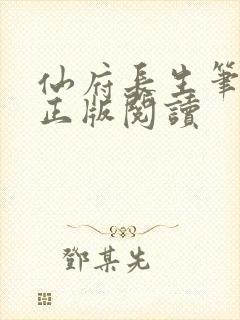 仙府長生筆
正版閱讀
鄧某先